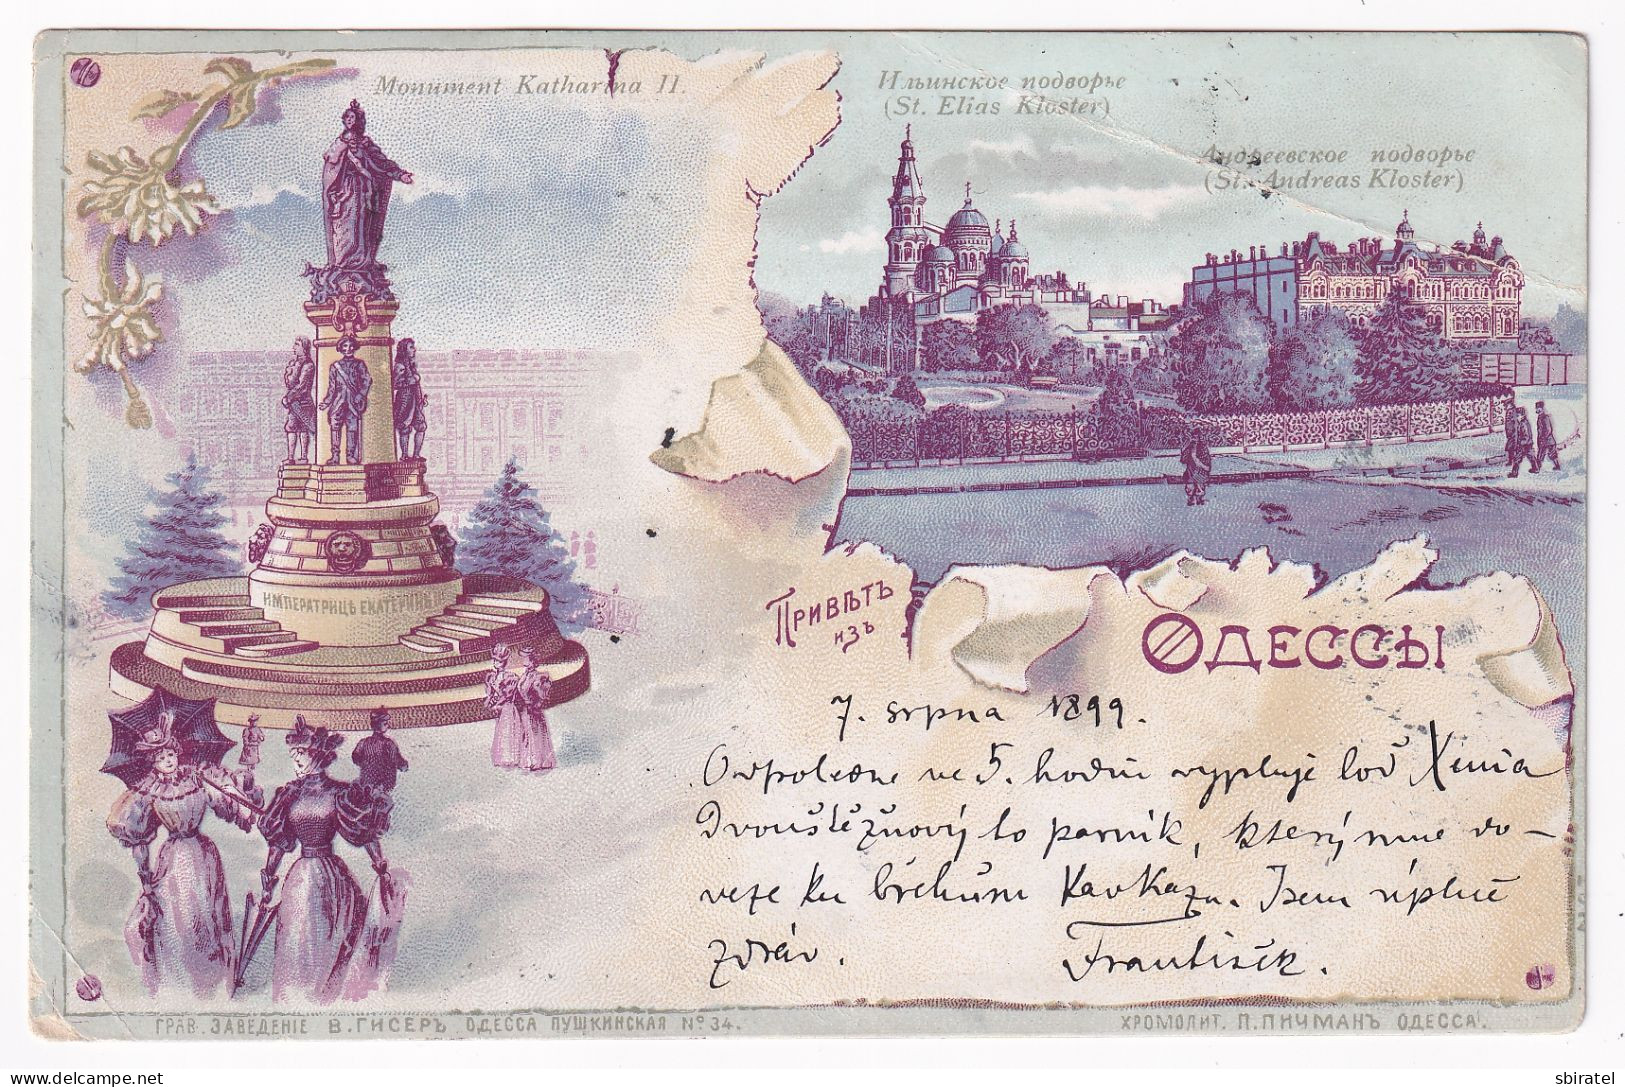 Monument Katharina II.
Ильинское подворье
(St. Elias Kloster)
Андреевское подворье
(St. Andreas Kloster)
ИМПЕРАТРИЦѢ ЕКАТЕРИНѢ II
Привѣтъ
изъ
Одессы
7. srpna 1899.
Odpoledne ve 5. hodin vypluje loď Xenia
Dvoustěžňový to parník, který mne do–
veze ku břehům Kavkázu. Jsem úplně
zdráv. Frantisek.
ГРАВ. ЗАВЕДЕНІЕ В. ГИСЕРЪ ОДЕССА ПУШКИНСКАЯ № 34.
ХРОМОЛИТ. П. ПИЧМАНЪ ОДЕССА.
(c) sbiratel.delcampe.net
sbiratel